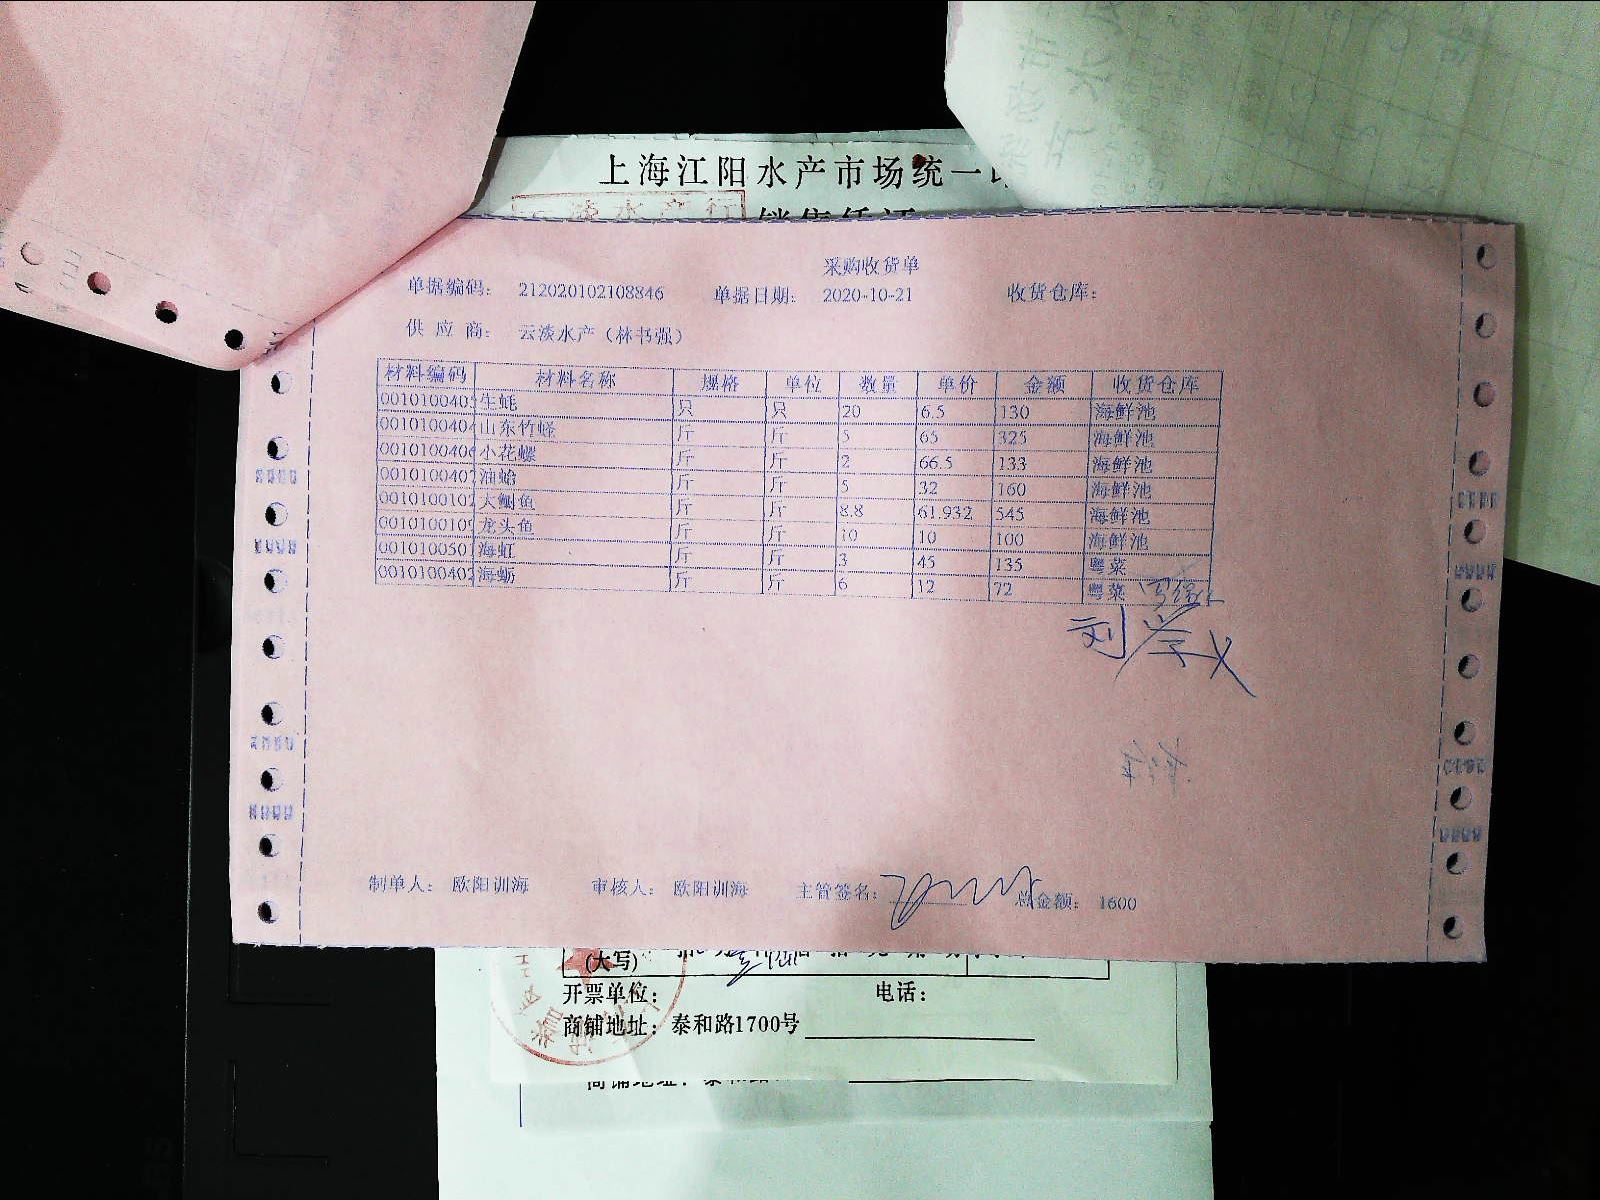 上海江阳水产市场统一
销售凭证
采购收货单
单据编码： 212020102108846 单据日期： 2020-10-21 收货仓库：
供 应 商： 云淡水产（林书强）
材料编码 材料名称 规格 单位 数量 单价 金额 收货仓库
001010040 生蚝 只 只 20 6.5 130 海鲜池
001010040 山东竹蛏 斤 斤 5 65 325 海鲜池
001010040 小花螺 斤 斤 2 66.5 133 海鲜池
001010040 油蛤 斤 斤 5 32 160 海鲜池
001010010 大鲷鱼 斤 斤 8.8 61.932 545 海鲜池
001010010 龙头鱼 斤 斤 10 10 100 海鲜池
001010050 海虹 斤 斤 3 45 135 粤菜
001010040 海蛎 斤 斤 6 12 72 粤菜
制单人： 欧阳训海 审核人： 欧阳训海 主管签名： 总金额： 1600
(大写)
开票单位： 电话：
商铺地址：泰和路1700号